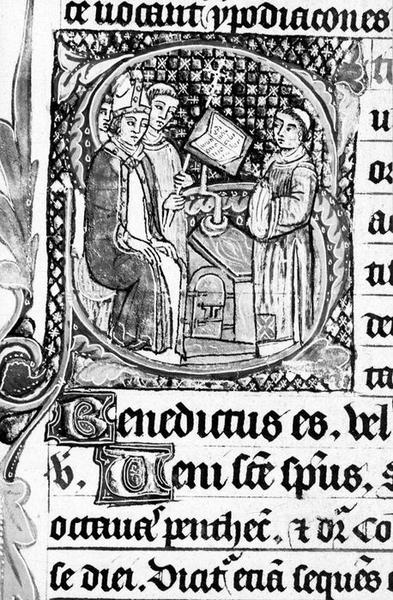 ce uocant ypodiacones
ti
u
or
a
tit
de
ta
Benedictus es. vel
V. Ueni sce sp̄us. s
octaua penthec̄. ⁊ dr̄ Co
se diei. Dicit̄ etiā sequēs